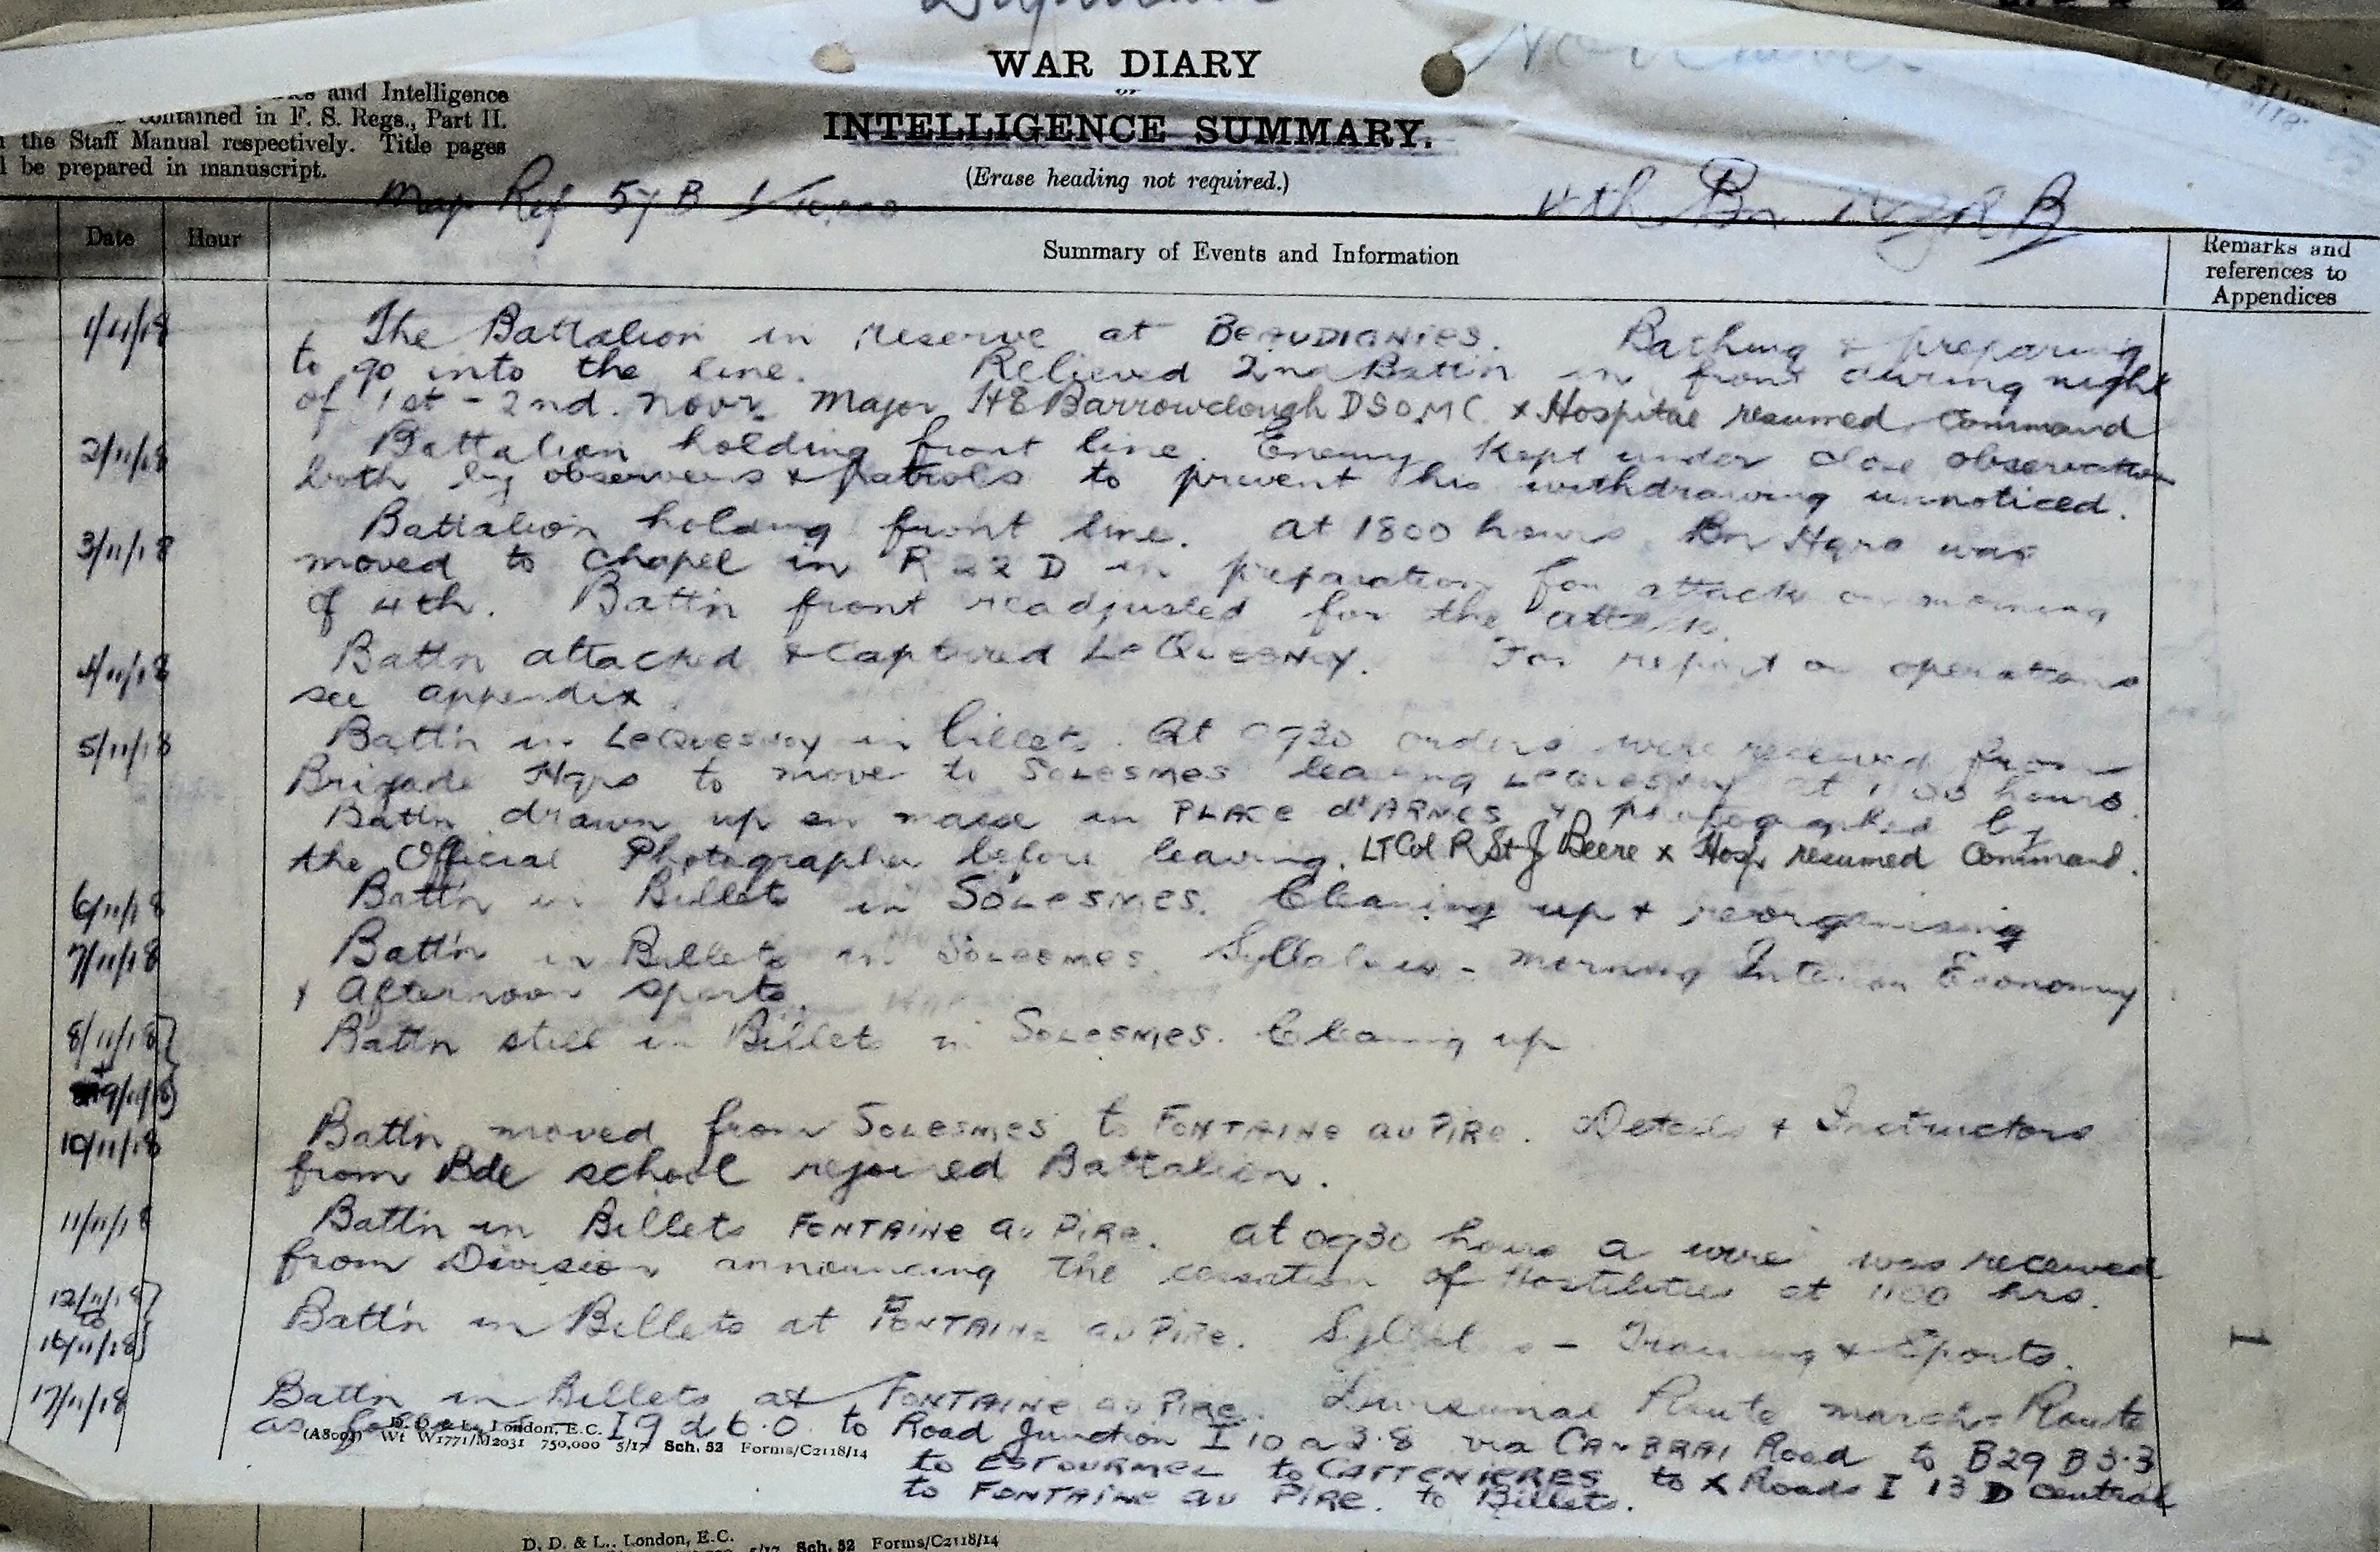 WAR DIARY
or
INTELLIGENCE SUMMARY.
(Erase heading not required.)
and Intelligence
contained in F. S. Regs., Part II.
the Staff Manual respectively. Title pages
be prepared in manuscript.
Map Ref 57 B
4th Bn N.Z.R.B
Date
Hour
Summary of Events and Information
Remarks and
references to
Appendices
1/11/18
The Battalion in reserve at BEAUDIGNIES. Bathing & preparing
to go into the line. Relieved 2nd Batt'n in front during night
of 1st - 2nd. Novr. Major HE Barrowclough DSO.MC. x Hospital resumed command
2/11/18
Battalion holding front line. Enemy kept under close observation
both by observers & patrols to prevent his withdrawing unnoticed.
3/11/18
Battalion holding front line. At 1800 hours Bn Hqrs was
moved to Chapel in R 22 D in preparation for attack on morning
of 4th. Batt'n front readjusted for the attack.
4/11/18
Batt'n attacked & captured Le QUESNOY. For report on operations
see appendix.
5/11/18
Batt'n in LeQuesnoy in billets. At 0930 orders were received from
Brigade Hqrs to move to SOLESMES leaving LeQUESNOY at 1100 hours.
Batt'n drawn up en masse in PLACE d'ARMES & photographed by
the Official Photographer before leaving. LT Col R St J Beere x Hosp resumed Command.
6/11/18
Batt'n in Billets in SOLESMES. Cleaning up & reorganising
7/11/18
Batt'n in Billets in SOLESMES. Syllabus - morning Interior Economy
& Afternoon sports.
8/11/18
+
9/11/18
Batt'n still in Billets in SOLESMES. Cleaning up
10/11/18
Batt'n moved from SOLESMES to FONTAINE au PIRE. Details & Instructors
from Bde school rejoined Battalion.
11/11/18
Batt'n in Billets FONTAINE au PIRE. At 0930 hours a wire was received
from Division announcing the cessation of Hostilities at 1100 hrs.
12/11/18
to
16/11/18
Batt'n in Billets at FONTAINE au PIRE. Syllabus - Training & Sports.
17/11/18
Batt'n in Billets at FONTAINE au PIRE. Divisional Route march - Route
as follows I 9 d 6.0 to Road Junction I 10 a 3.8 via CAMBRAI Road to B29 B 3.3
to ESTOURMEL to CATTENIERES to X Roads I 13 D central
to FONTAINE au PIRE. to Billets.
D. D. & L., London, E.C.
(A8004) Wt W1771/M2031 750,000 5/17 Sch. 52 Forms/C2118/14
1
D. D. & L., London, E.C.
5/17 Sch. 52 Forms/C2118/14